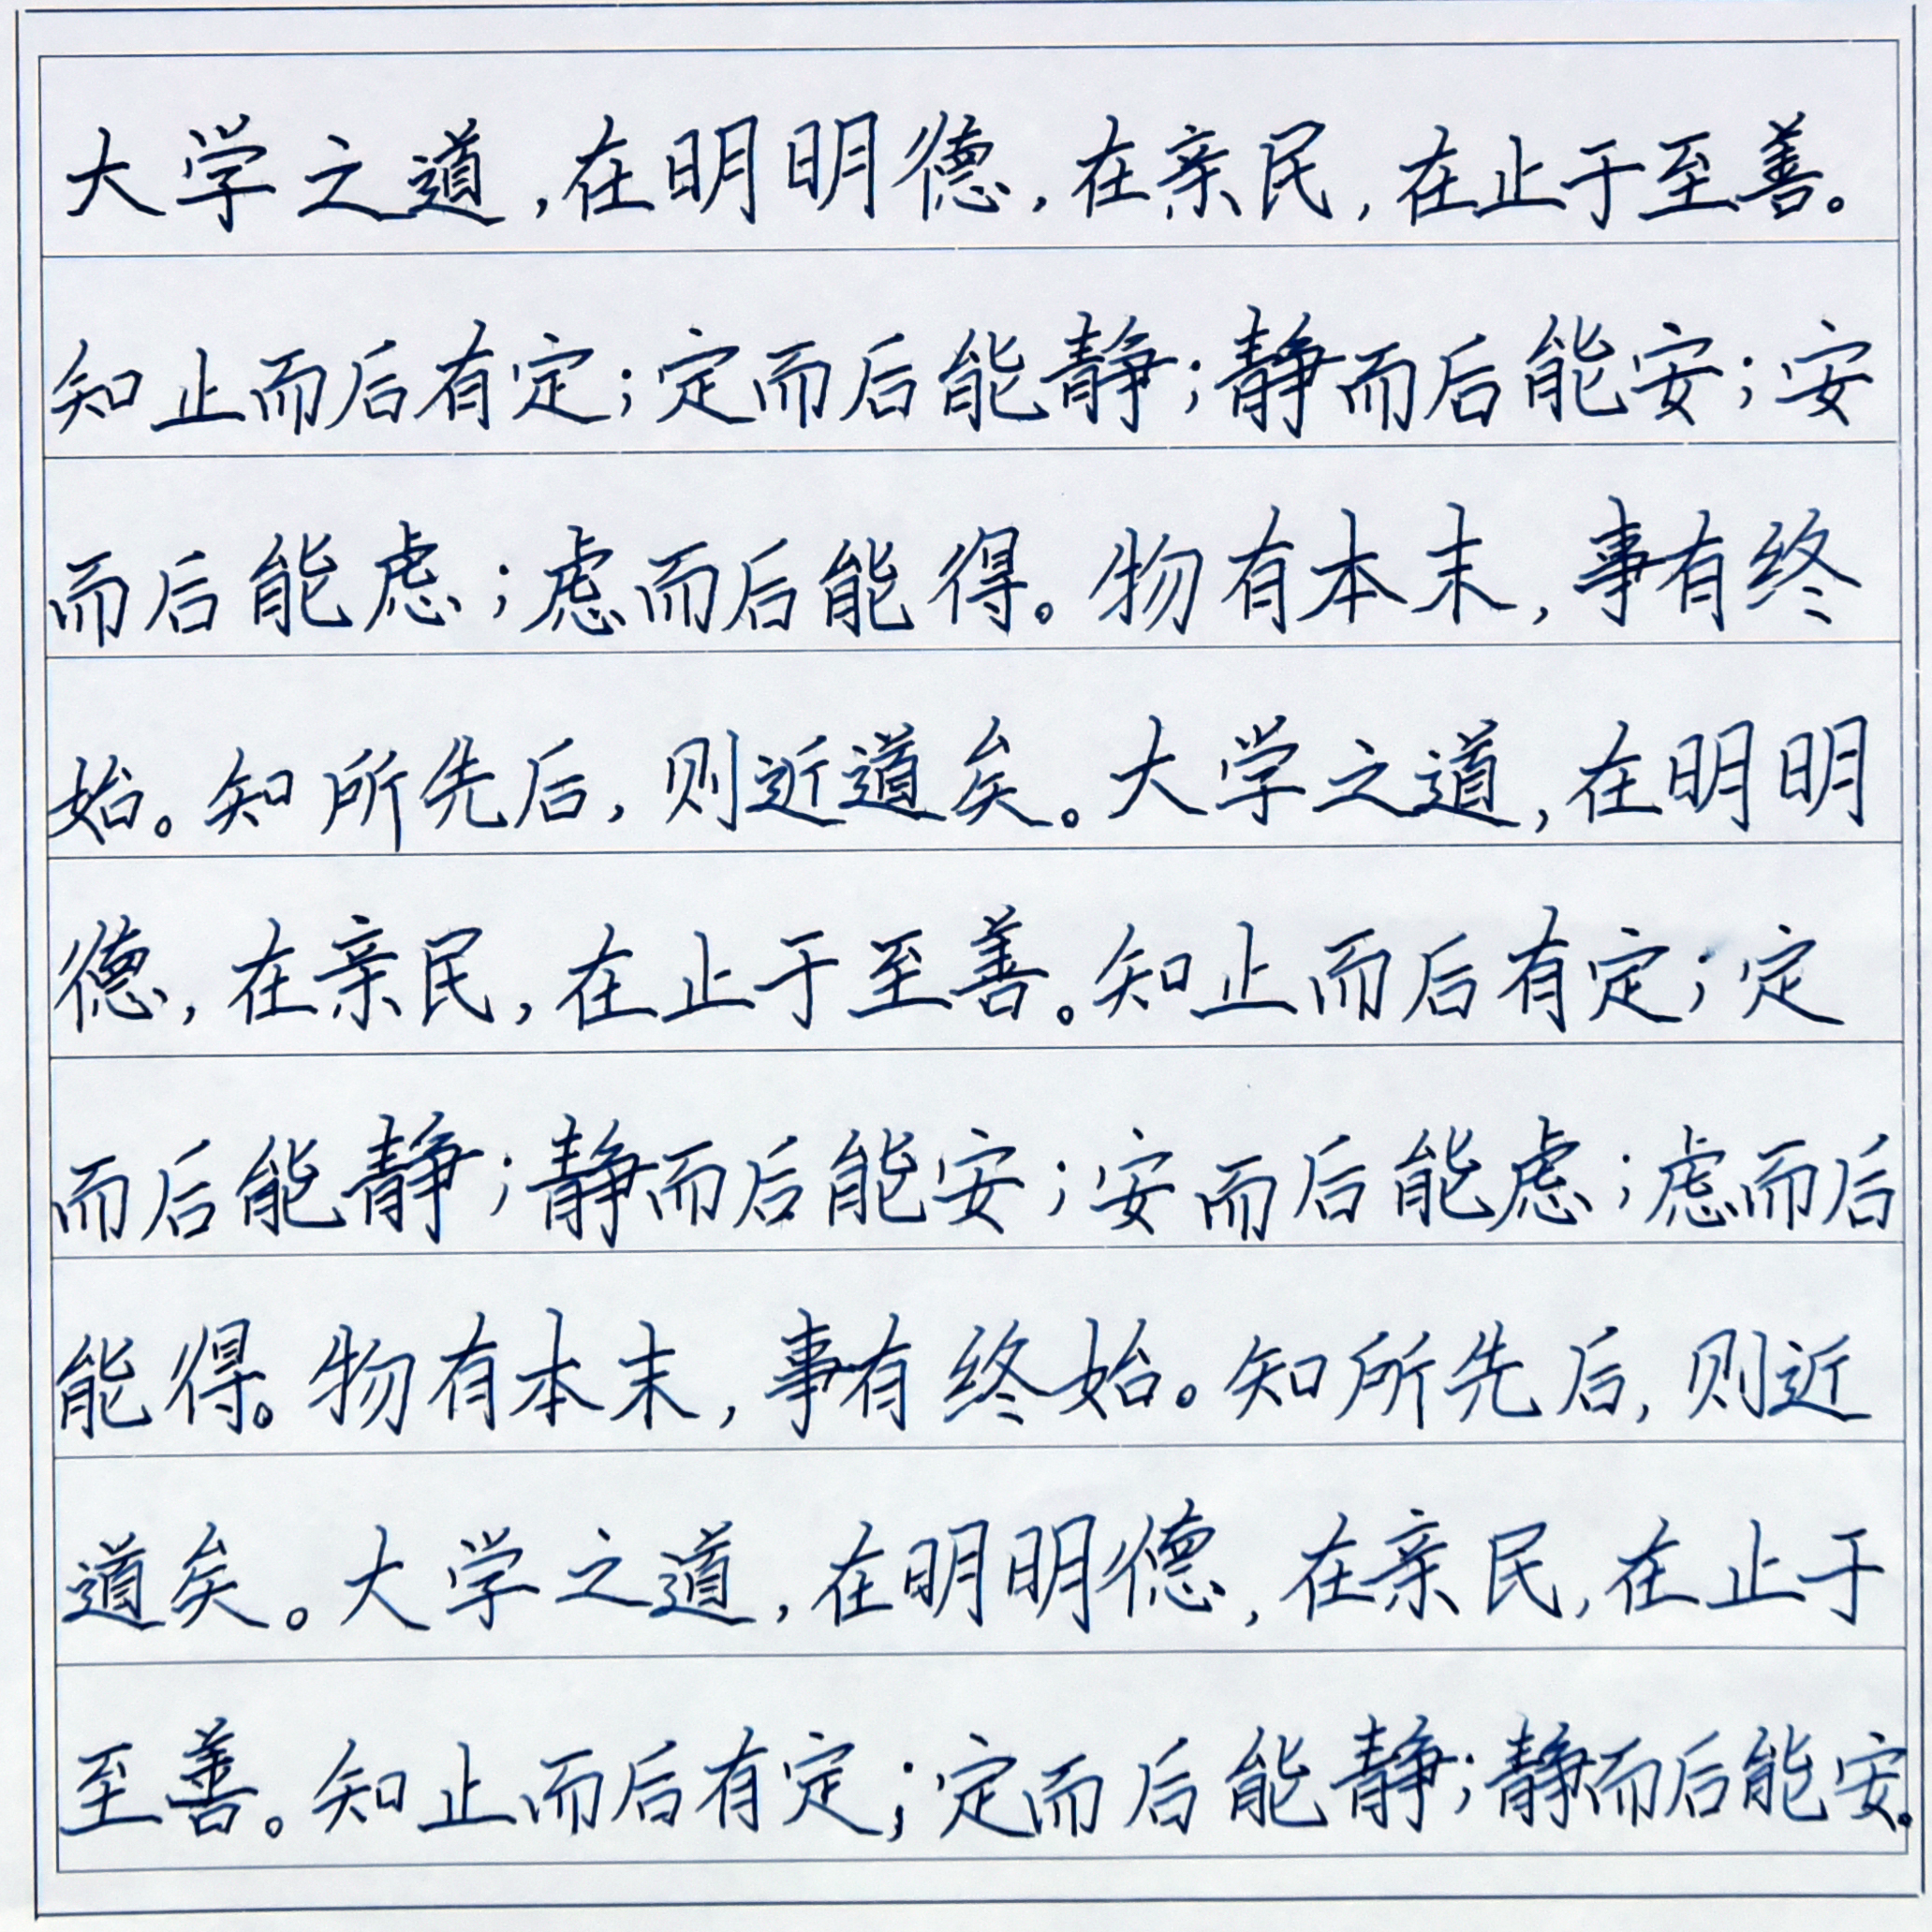 大学之道,在明明德,在亲民,在止于至善。
知止而后有定;定而后能静;静而后能安;安
而后能虑;虑而后能得。物有本末,事有终
始。知所先后,则近道矣。大学之道,在明明
德,在亲民,在止于至善。知止而后有定;定
而后能静;静而后能安;安而后能虑;虑而后
能得。物有本末,事有终始。知所先后,则近
道矣。大学之道,在明明德,在亲民,在止于
至善。知止而后有定;定而后能静;静而后能安。